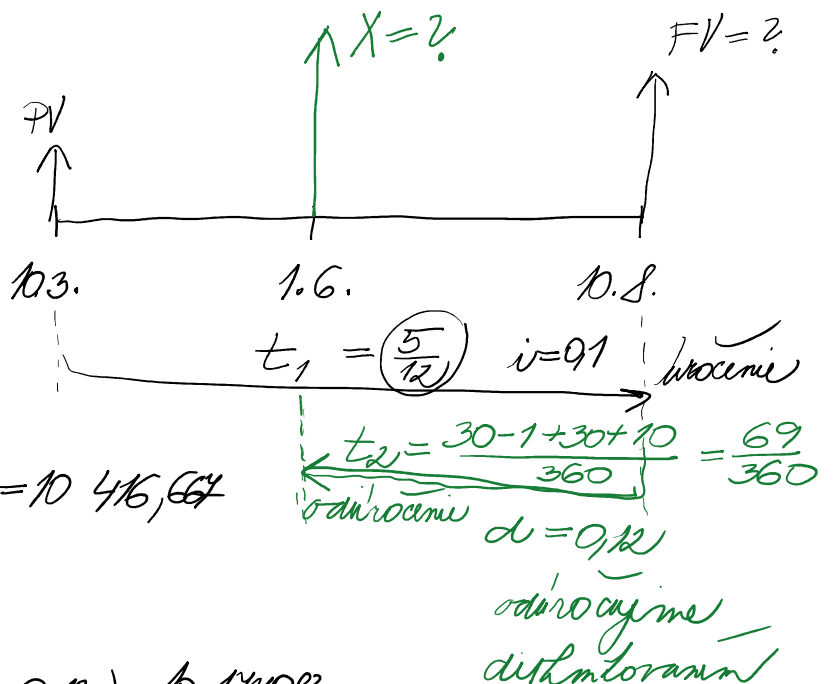 X = ?
FV = ?
PV
10.3.
1.6.
10.8.
t₁ = 5/12 i=0,1 úročenie
t₂ = 30-1+30+10/360 = 69/360
=10 416,667
odúročenie
d = 0,12
odúročujeme